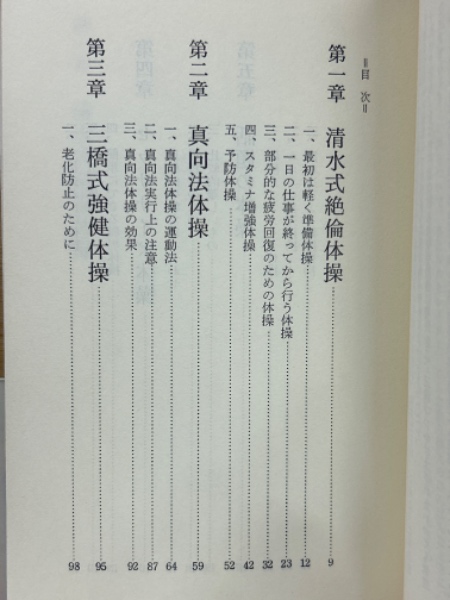 ＝目 次＝
第一章 清水式絶倫体操……9
一、最初は軽く準備体操……12
二、一日の仕事が終ってから行う体操……23
三、部分的な疲労回復のための体操……32
四、スタミナ増強体操……42
五、予防体操……52
第二章 真向法体操……59
一、真向法体操の運動法……64
二、真向法実行上の注意……87
三、真向法体操の効果……92
第三章 三橋式強健体操……95
一、老化防止のために……98